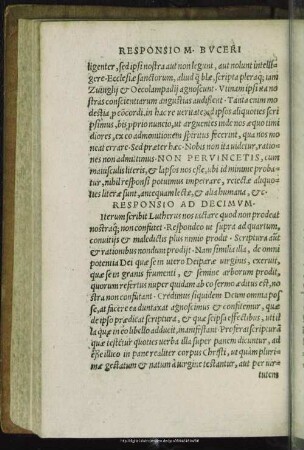 RESPONSIO M. BVCERI
ligenter, sed ipsi nostra aut non legunt, aut nolunt intelli⸗
gere. Ecclesiæ sanctorum, aliud ꝗ̃ blæ, scripta pleraq; iam
Zuinglij & Oecolampadij agnoscunt. Vtinam ipsi ita no
stras conscientiarum angustias audissent. Tanta enim mo
destia ꝓ cōcordia, in hac re veritate, ad ipsos aliquoties scri
psimus, bis priuo nuncio, ut arguentes inde nos æquo timi
diores, ex eo admonitionem speratus fecerent, qua nos mo
neāt errare. Sed præter hæc. Nobis non ita uidetur, ratio⸗
nes non admittimus. NON PERVINCETIS, cum
maiusculis literis, & lapsos nos esse, ubi id minime proba⸗
tur, nihil responsi potuimus impetrare, relectæ aliquo⸗
ties literæ sunt, antequam lectæ, & alia humana, &c.
RESPONSIO AD DECIMVM.
Iterum scribit Lutherus nos iactare quod non prodeat
nostraq;, non confutet. Respondeo ut supra ad quartum,
conuitijs & maledictis plus nimio prodit. Scriptura aūt
& rationibus nondum prodijt. Nam similia illa, de omni
potentia Dei quæ sem utero Deiparæ uirginis, exeruit,
quæ se in granis frumenti, & semine arborum prodit,
quorum refertus nuper quidam ab eo sermo æditus est, no
stra non confutant. Credimus siquidem Deum omnia pos
se, at facere ea duntaxat agnoscimus & confitemur, quæ
de ipso prædicat scriptura, & quæ se ipsi effectibus, ut id
la quæ in eo libello adducit, manifestant. Proferat scripturā
quæ testetur quoties uerba illa super panem dicuntur, ad
esse illico in pane realiter corpus Christi, ut quàm pluri⸗
mæ gestatum & natum à uirgine testantur, aut per uer⸗
tutem